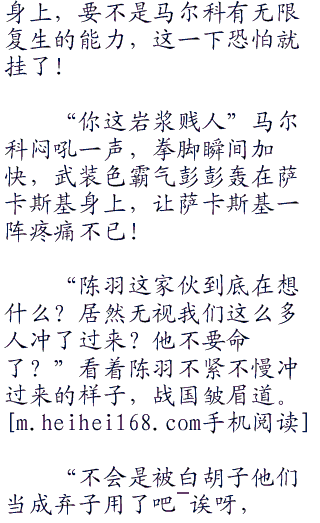 身上，要不是马尔科有无限
复生的能力，这一下恐怕就
挂了！
“你这岩浆贱人”马尔
科闷吼一声，拳脚瞬间加
快，武装色霸气彭彭轰在萨
卡斯基身上，让萨卡斯基一
阵疼痛不已！
“陈羽这家伙到底在想
什么？居然无视我们这么多
人冲了过来？他不要命
了？”看着陈羽不紧不慢冲
过来的样子，战国皱眉道。
[m.heihei168.com手机阅读]
“不会是被白胡子他们
当成弃子用了吧¯诶呀，